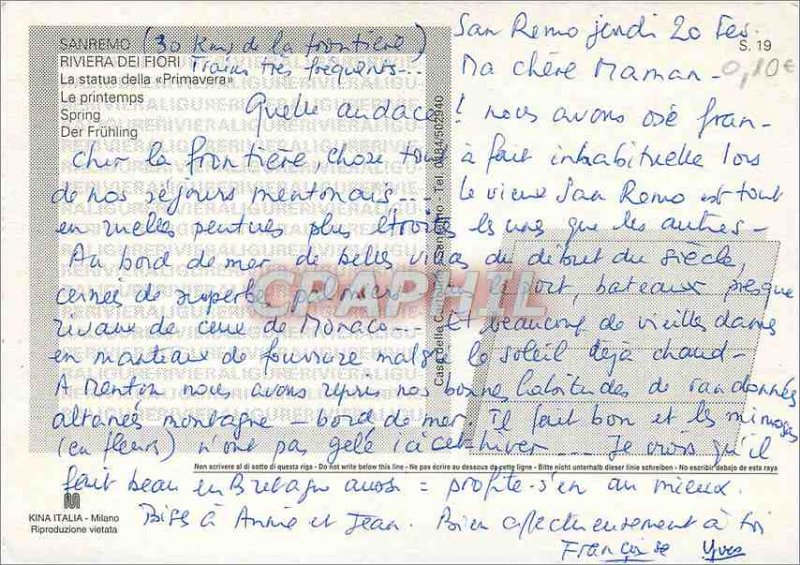 San Remo jeudi 20 Fev.
SANREMO (30 Kms de la frontière) S. 19
RIVIERA DEI FIORI Trains très fréquents...
Ma chère Maman - 0,10€
La statua della «Primavera»
Le printemps
Spring
Der Frühling
Quelle audace! nous avons osé fran-
chir la frontière, chose tout à fait inhabituelle lors
de nos séjours mentonais... le vieux San Remo est tout
en ruelles pentues plus étroites les unes que les autres -
Au bord de mer de belles villas du début du siècle,
cernées de superbes palmiers le port, bateaux presque
rivaux de ceux de Monaco... Et beaucoup de vieilles dames
en manteaux de fourrure malgré le soleil déjà chaud -
A Menton nous avons repris nos bonnes habitudes de randonnés
altanés montagne - bord de mer. Il fait bon et les mimosas
(en fleurs) n'ont pas gelé ici cet hiver... Je crois qu'il
Non scrivere al di sotto di questa riga - Do not write below this line - Ne pas écrire au dessous de cette ligne - Bitte nicht unterhalb dieser linie schreiben - No escribir debajo de esta raya
fait beau en Bretagne aussi = profite-s'en au mieux.
KINA ITALIA - Milano
Riproduzione vietata
Bises à Annie et Jean. Bien affectueusement à toi
Françoise Yves
CPAPHIL
Tel. 0184/502940